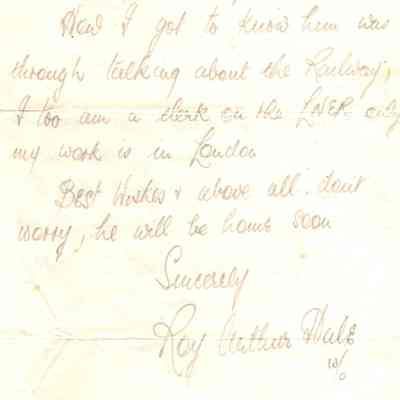 How I got to know him was
through talking about the Railway,
I too am a clerk on the LNER only
my work is in London
Best Wishes & above all dont
worry, he will be home soon
Sincerely
Roy Arthur Hale